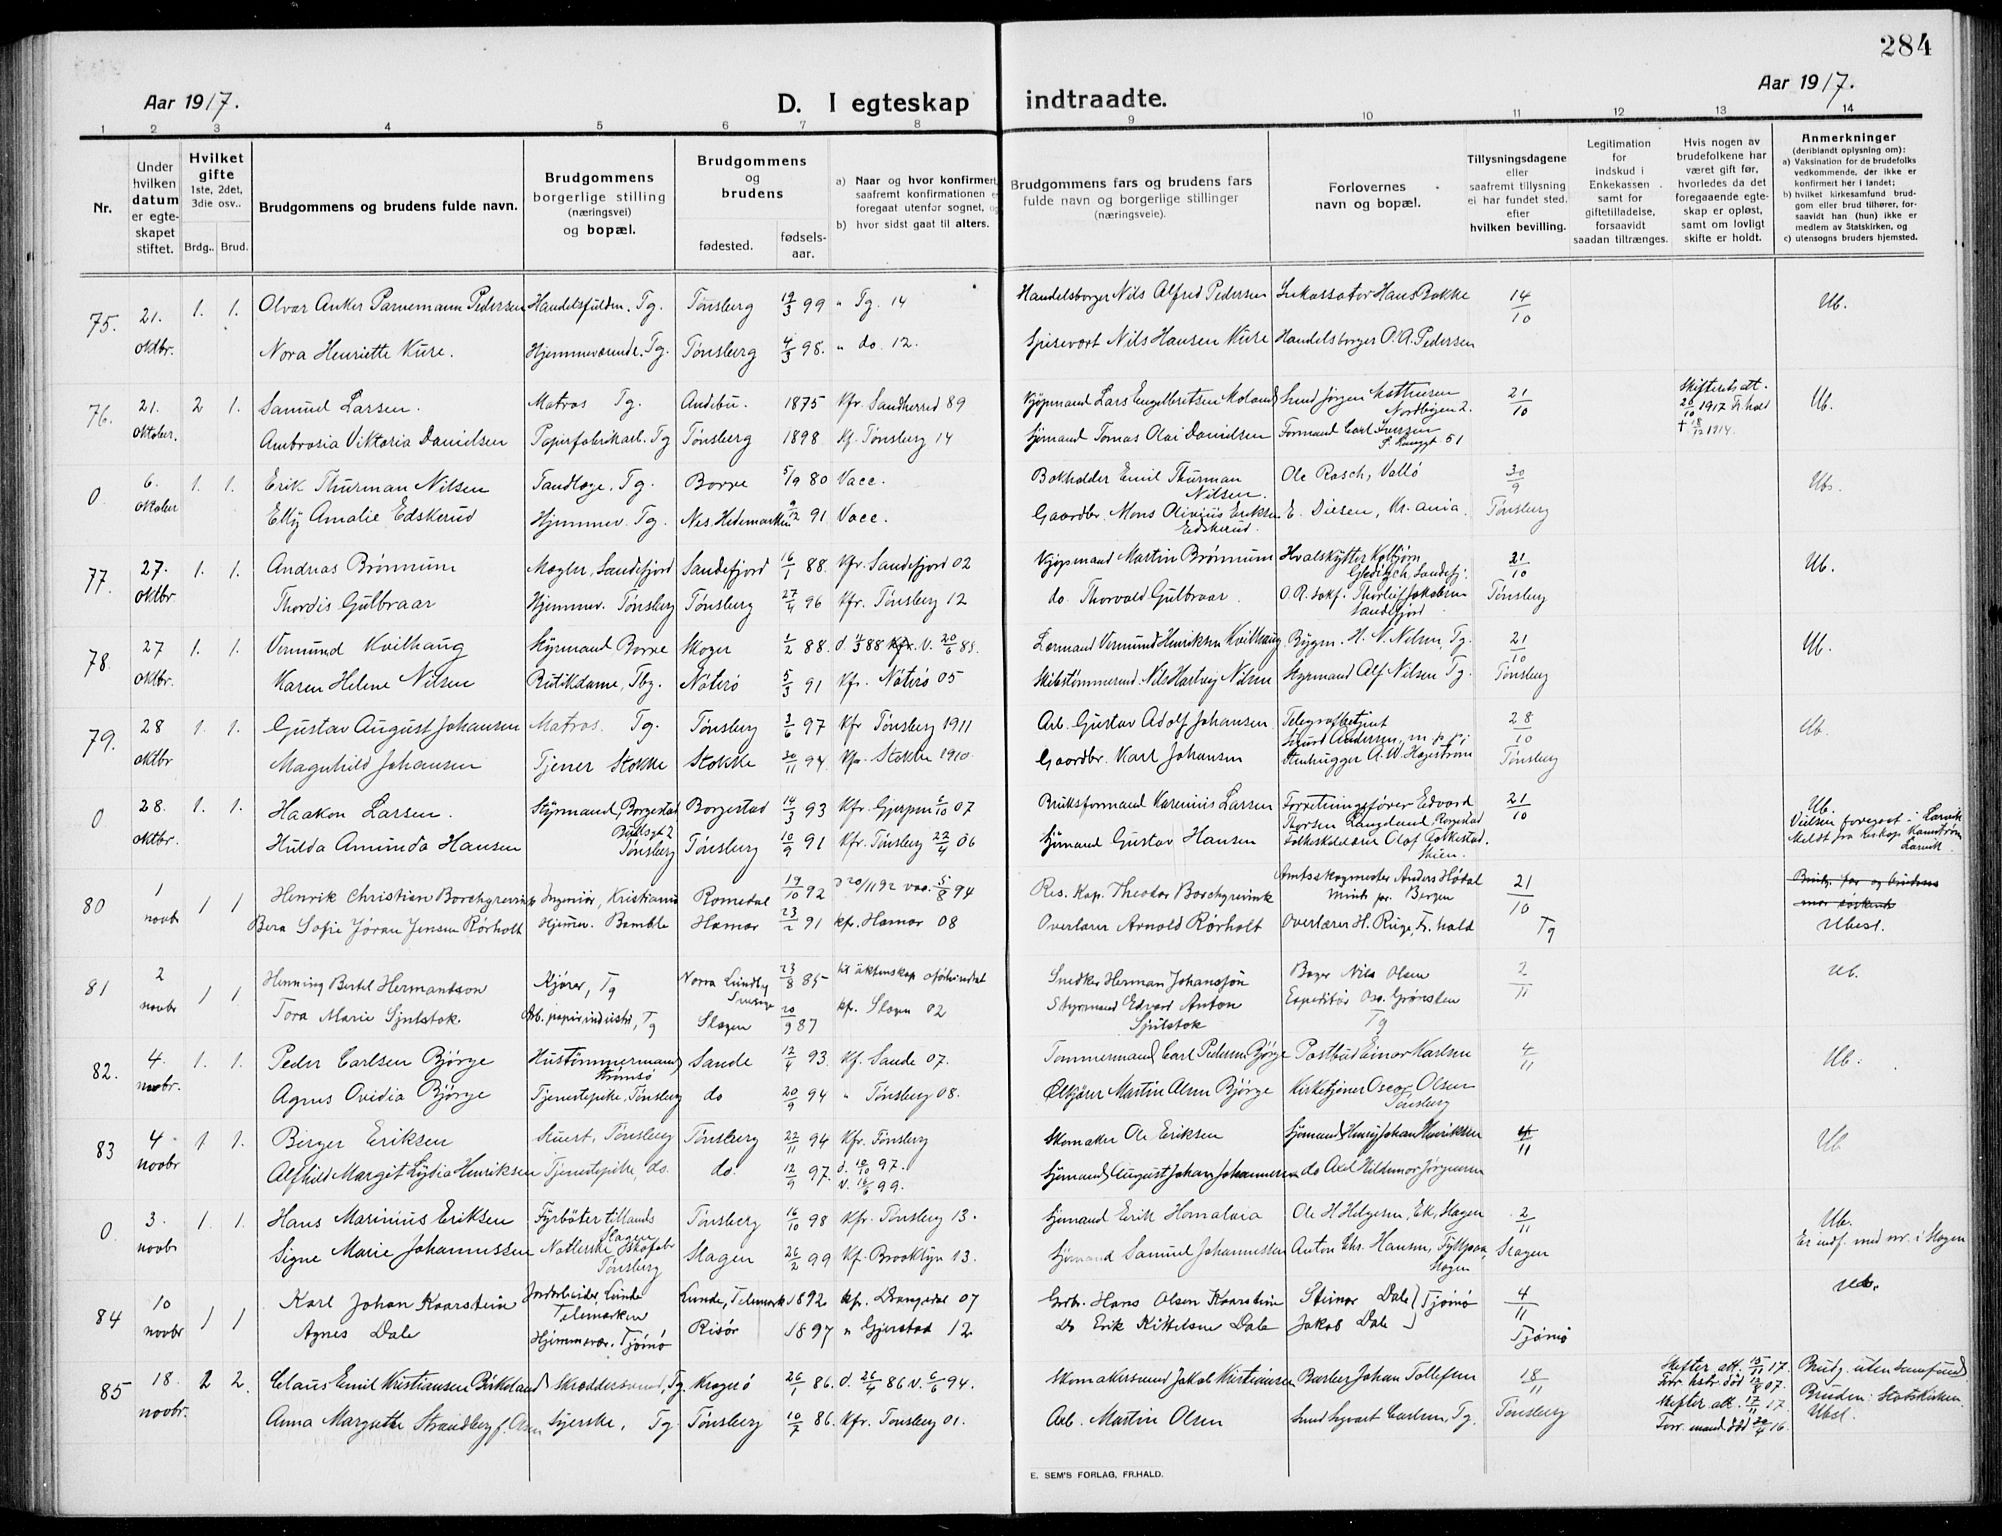 284
Aar 1917.
D. I egteskap indtraadte.
Aar 1917.
1 2 3 4 5 6 7 8 9 10 11 12 13 14
Nr.
Under hvilken datum er egte- skapet stiftet.
Hvilket gifte 1ste, 2det, 3die osv..
Brdg.. Brud.
Brudgommens og brudens fulde navn.
Brudgommens borgerlige stilling (næringsvei) og bopæl.
Brudgommens og brudens
fødested. fødsels- aar.
a) Naar og hvor konfirmert, saafremt konfirmationen er foregaat utenfor sognet, og
b) hvor sidst gaat til alters.
Brudgommens fars og brudens fars fulde navn og borgerlige stillinger (næringsveie).
Forlovernes navn og bopæl.
Tillysningsdagene eller saafremt tillysning ei har fundet sted, efter hvilken bevilling.
Legitimation for indskud i Enkekassen samt for giftetilladelse, forsaavidt saadan tiltrænges.
Hvis nogen av brudefolkene har været gift før, hvorledes da det foregaaende egte- skap er opløst, samt om lovligt skifte er holdt.
Anmerkninger (deriblandt oplysning om): a) Vaksination for de brudefolks vedkommende, der ikke er konfirmert her i landet; b) hvilket kirkesamfund brud- gom eller brud tilhører, for- saavidt han (hun) ikke er medlem av Statskirken, og c) utensogns bruders hjemsted.
75. 21. oktbr. 1. 1. Olvar Anker Parnemann Pedersen Handelsfuldm. Tg. Tønsberg 19/3 99 " Tg. 14 Handelsborger Nils Alfred Pedersen Inkassator Hans Bakke 14/10 Ub.
Nora Henriette Kure. Hjemmeværende. Tg. Tønsberg 4/3 98. " do. 12. Spisevært Nils Hansen Kure Handelsborger O. A. Pedersen
76. 21. oktober. 2 1. Samuel Larsen. Matros Tg. Andebu. 1875 Kfr. Sandherred 89 Kjøpmand Lars Engelbretsen Moland Smed Jørgen Mathisen Nordbyen 2. 21/10 Skifterets att. 20/10 1917 Fr.hald † 18/12 1914. Ub.
Ambrosia Viktoria Danielsen Papirfabrikarb. Tg Tønsberg 1898 Kf. Tønsberg 14 Sjømand Tomas Olai Danielsen Formand Carl Iversen 51
0 6. oktober 1. 1. Erik Thurman Nilsen Tandlæge. Tg. Borre 5/9 80 Vacc. Bokholder Emil Thurman Nilsen. Ole Rasch, Vallø 30/9 Ub.
Elly Amalie Edskerud Hjemmev. Tg. Nes. Hedemarken 9/12 91 Vacc. Gaardbr. Mons Olivius Eriksen Edskerud. E. Diesen, Kr.ania. Tønsberg
77. 27. oktbr. 1. 1. Andreas Brønnum Mægler, Sandefjord Sandefjord 16/1 88 Kfr. Sandefjord 02 Kjøpmand Martin Brønnum Hvalskytter Kolbjørn Gleditsch, Sandefj. 21/10 Ub.
Thordis Gulbraar Hjemmev. Tønsberg Tønsberg 27/4 96 Kfr. Tønsberg 12 do. Thorvald Gulbraar. O. R. sakf. Thorleif Jakobsen Sandefjord. Tønsberg
78. 27 oktbr. 1. 1. Vermund Kvilhaug Styrmand Borre Skoger 1/2 88. d. 4/3 88 V. 20/6 88. Lærmand Vermund Henriksen Kvilhaug. Bygm. H. N. Nilsen, Tg. 21/10 Ub.
Karen Helene Nilsen Butikdame, Tbg. Nøterø 5/3 91 Kfr. Nøterø 05 Skibstømmermd. Nils Hartvig Nilsen Styrmand Alf Nilsen Tg. Tønsberg
79. 28 oktbr 1. 1. Gustav August Johansen Matros. Tg. Tønsberg 3/6 97 Kfr Tønsberg 1911 Arb. Gustav Adolf Johansen. Telegrafbetjent Sigurd Andersen 28/10 Ub.
Magnhild Johansen Tjener Stokke Stokke 30/11 94 Kfr. Stokke 1910. Gaardbr. Karl Johansen Stenhugger A. W. Hagestrøm Tønsberg
0 28. oktbr. 1. 1. Haakon Larsen. Styrmand, Borgestad Borgestad 14/3 93 Kfr. Gjerpen 6/10 07 Bruksformand Karenius Larsen Forretningsfører Edvard Thorsen Langland, Borgestad 21/10 Ub. Vielsen foregaat i Larvik Meldt fra Larvik
Hulda Aminda Hansen Tønsberg Tønsberg 10/9 91 Kfr. Tønsberg 22/4 06 Sjømand Gustav Hansen Folkeskolelærer Olaf Folkestad. Skien.
80 1 novbr 1 1 Henrik Christian Borchgrevink Ingeniør, Kristiania Romedal 19/10 92 d 20/11 92 vac. 5/8 94 Res. Kap. Theodor Borchgrevink Amtsskogmester Anders Hødal Bergen 21/10 Ubesl.
Bera Sofie Jøran Jensen Rørholt Hjemmev. Bamble Hamar 23/2 91 kf. Hamar 08 Overlærer Arnold Rørholt Overlærer H. Ruge, Fr.hald Tg
81 2 novbr 1 1 Henning Bertel Hermansson Kjører, Tg Norra Lundby Sverige 23/8 85 til äktenskap oförhindret Snedker Herman Johansson Bager Nils Olsen 2/11 Ub.
Tora Marie Sjulstok. Arb. papirindustri, Tg Slagen 20/9 87 kf. Slagen 02 Styrmand Edvard Anton Sjulstok Expeditør Osc. Grønsten Tg
82. 4. novbr. 1. 1. Peder Carlsen Bjørge Hustømmermand Strømsø Sande 12/4 93. Kf. Sande 07. Tømmermand Carl Pedersen Bjørge Postbud Einar Karlsen 4/11 Ub.
Agnes Ovidia Bjørge Tjenestepike, Tønsberg do 20/9 94 " Tønsberg 08. Ølkjører Martin Olsen Bjørge Kirketjener Oscar Olsen Tønsberg
83 4. novbr 1 1. Birger Eriksen Stuert, Tønsberg Tønsberg 22/11 94 Kfr. Tønsberg Skomaker Ole Eriksen Sjømand Henry Johan Henriksen 4/11 Ub
Alfhild Margit Lydia Henriksen Tjenestepike, do. do. 12/9 97. d. 10/10 97. v. 16/6 99. Sjømand August Johan Johannesen do Axel Hildemar Jørgensen
0. 3. novbr 1. 1. Hans Marinius Eriksen Fyrbøter tillands Slagen Tønsberg 16/10 98 Kfr. Tønsberg 13. Sjømand Erik Homalvia Ole H Helgesen, Ek, Slagen 2/11 Ub. Er indf. med nr. i Slagen
Signe Marie Johannessen Natlerske Skofabr Tønsberg Slagen 26/2 99 Kf. Brooklyn 13. Sjømand Samuel Johannessen Anton Chr. Hansen, Slagen Slagen
84 10 novbr 1 1 Karl Johan Kaarstein Jordarbeider Lunde Telemarken Lunde, Telemark 1892 kf. Drangedal 07 Grdbr. Hans Olsen Kaarstein Steinar Dale } Tjømø 4/11 Ub.
Agnes Dale Hjemmevær. Tjømø Risør 1897 " Gjerstad 12 Do Erik Kittelsen Dale Jakob Dale Tjømø
85 18. novbr. 2 2. Claus Emil Kristiansen Birkeland Skræddersvend, Tg. Kragerø 26/1 86. d. 26/4 86 v. 6/6 94. Skomakersvend Jakob Kristiansen Barber Johan Tollefsen 18/11 Skifter. att. 15/11 17. Forr. hstr. død 12/8 07. Brudg. uten samfund
Anna Margrethe Strandberg f. Olsen Syerske, Tg Tønsberg 10/7 86. Kfr. Tønsberg 01. Arb. Martin Olsen Smed Sigvart Carlsen, Tg. Tønsberg Skifter att. 17/11 17. Forr. mand død 20/4 16. Bruden: Statskirken. Ubsl.
E. SEM'S FORLAG, FR.HALD.